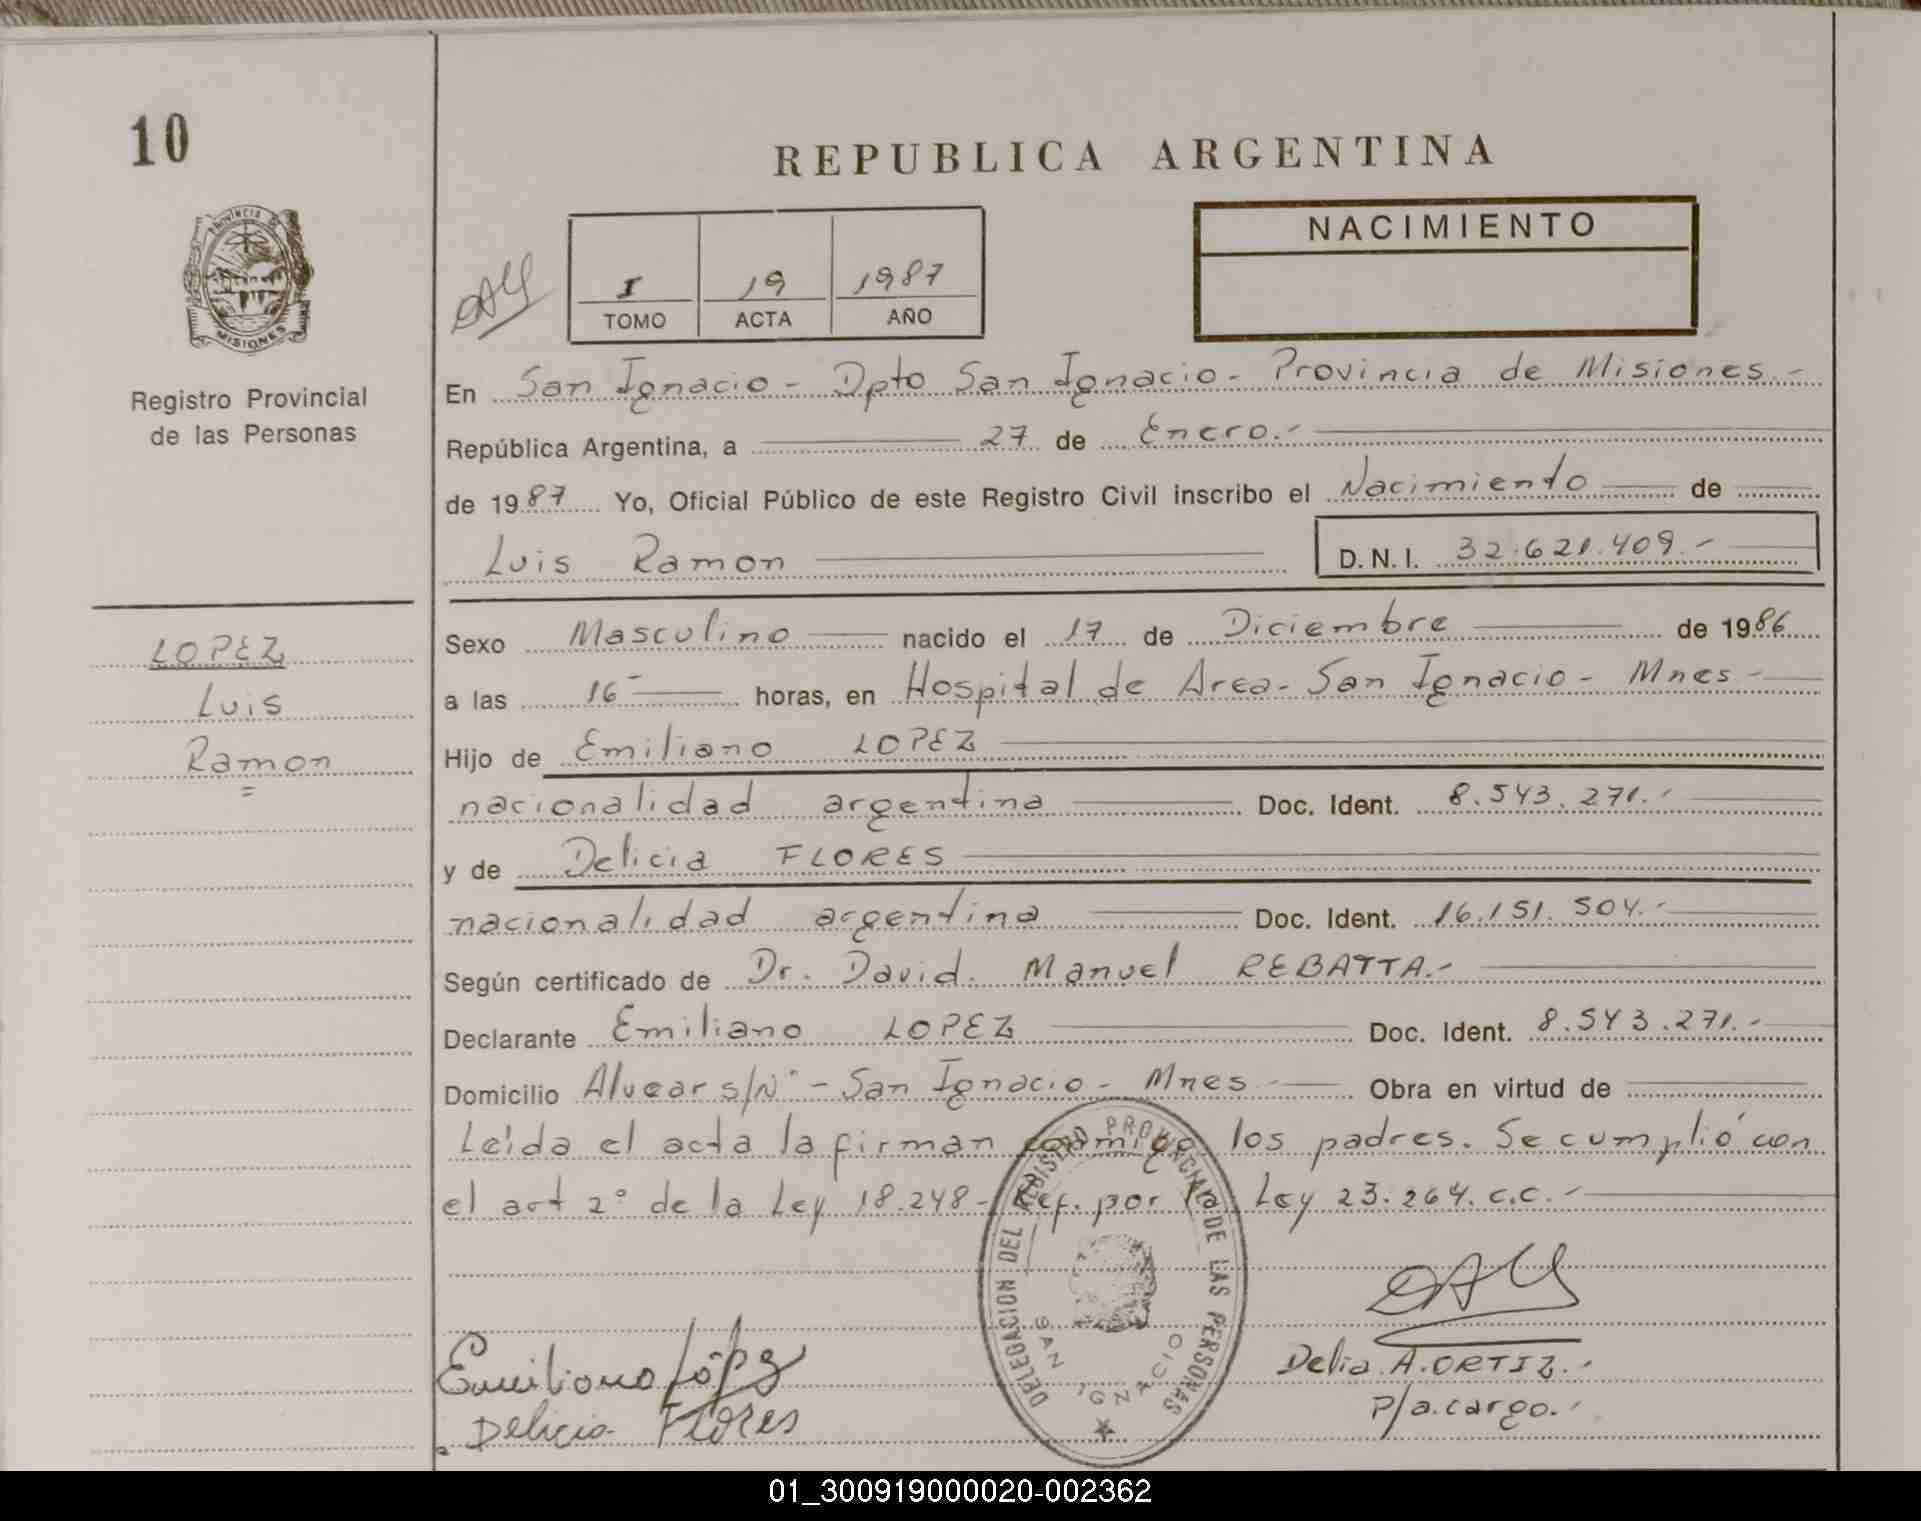 10
REPUBLICA ARGENTINA
PROVINCIA DE
MISIONES
Registro Provincial
de las Personas
I 19 1987
TOMO ACTA AÑO
NACIMIENTO
En San Ignacio - Dpto San Ignacio - Provincia de Misiones.-
República Argentina, a 27 de Enero.-
de 1987 Yo, Oficial Público de este Registro Civil inscribo el Nacimiento de
Luis Ramon D.N.I. 32.621.409.-
LOPEZ
Luis
Ramon
=
Sexo Masculino nacido el 17 de Diciembre de 1986
a las 16 horas, en Hospital de Area - San Ignacio - Mnes -
Hijo de Emiliano LOPEZ
nacionalidad argentina Doc. Ident. 8.543.271.-
y de Delicia FLORES
nacionalidad argentina Doc. Ident. 16.151.504.-
Según certificado de Dr. David Manuel REBATTA.-
Declarante Emiliano LOPEZ Doc. Ident. 8.543.271.-
Domicilio Alvear s/N° - San Ignacio - Mnes - Obra en virtud de
Leída el acta la firman conmigo los padres. Se cumplió con
el art 2° de la Ley 18.248 - Ref. por la Ley 23.264. c.c.-
DELEGACION DEL REGISTRO PROVINCIAL DE LAS PERSONAS
SAN IGNACIO
Emiliano López
Delicia Flores
Delia A. ORTIZ.-
P/a. cargo.-
01_300919000020-002362